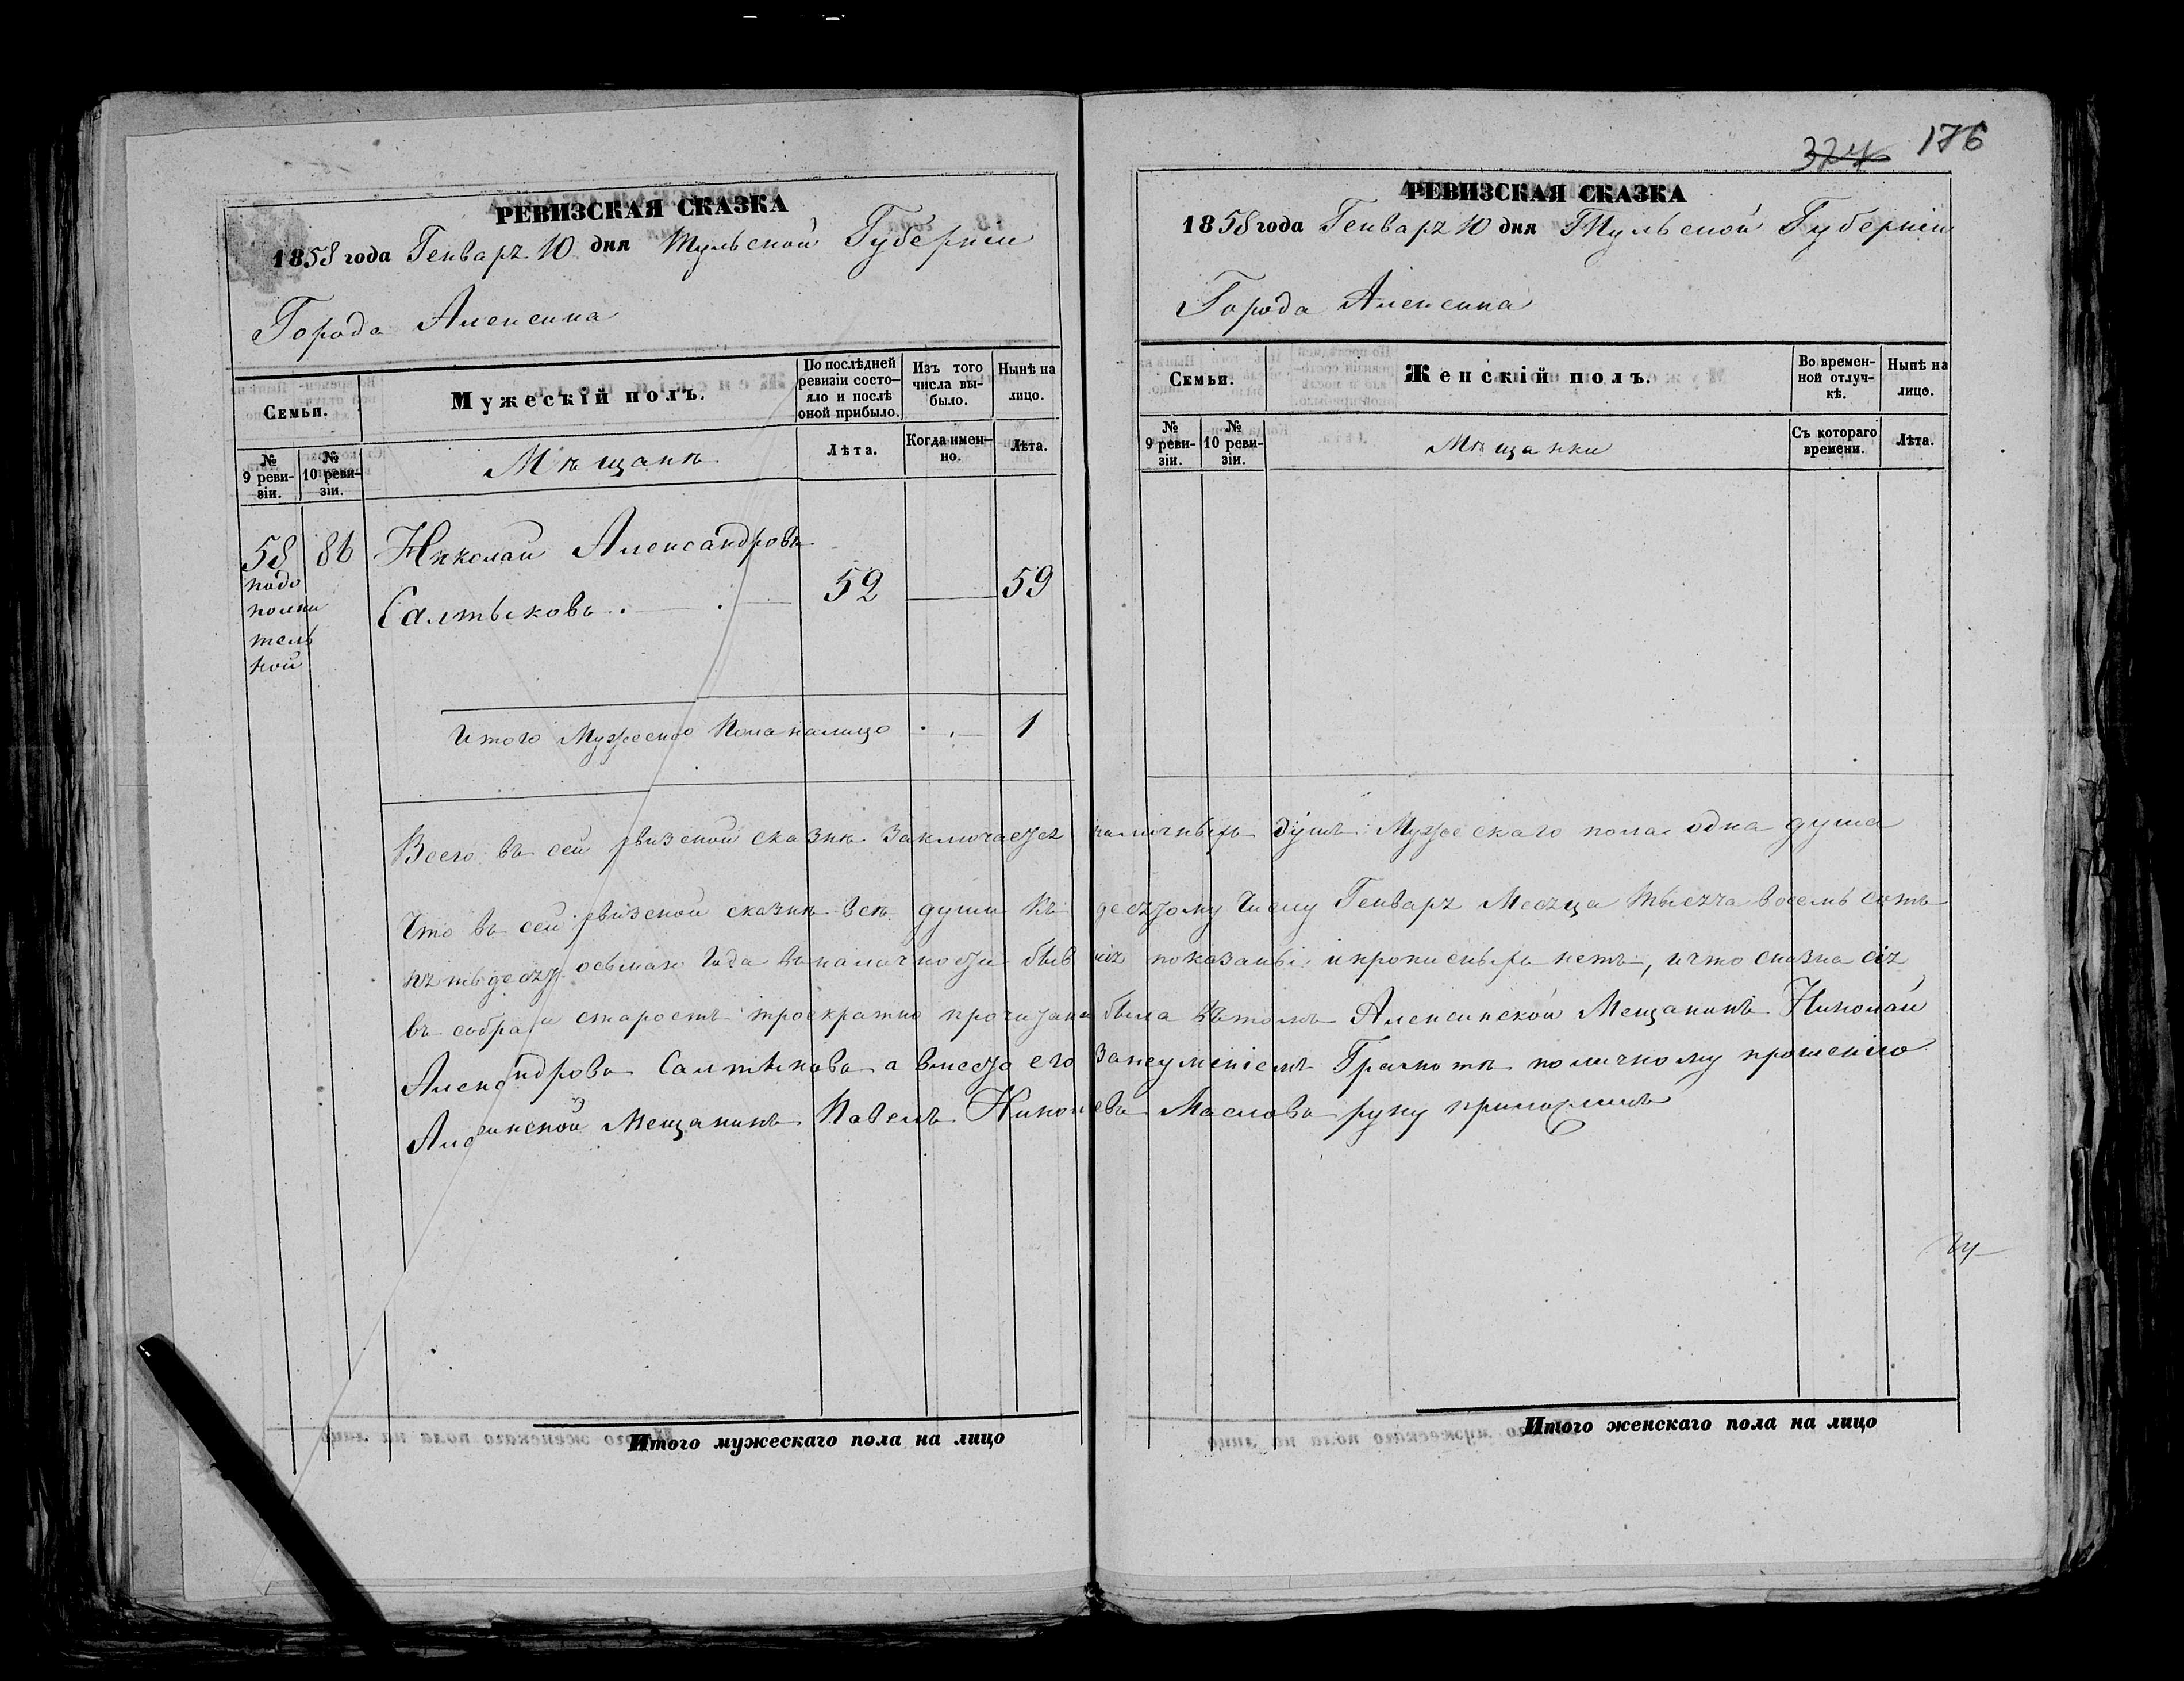 324 176
РЕВИЗСКАЯ СКАЗКА
1858 года Генваря 10 дня Тульской Губернии
Города Алексина
Семьи.
Мужескій полъ.
По послѣдней ревизіи состо-яло и послѣ оной прибыло.
Изъ того числа вы-было.
Нынѣ на лицо.
№ 9 реви-зіи.
№ 10 реви-зіи.
Мѣщанѣ
Лѣта.
Когда имен-но.
Лѣта.
58 86 Николай Александровъ
подо
полни
тель
ной
Салтыковъ
52 59
Итого Мужеска Пола налицо 1
РЕВИЗСКАЯ СКАЗКА
1858 года Генваря 10 дня Тульской Губерніи
Города Алексина
Семьи.
Женскій полъ.
Во времен-ной отлуч-кѣ.
Нынѣ на лицо.
№ 9 реви-зіи.
№ 10 реви-зіи.
Мѣщанки
Съ котораго времени.
Лѣта.
Всего въ сей ревизской сказкѣ заключается наличныхъ душъ Мужескаго пола одна душа
Что въ сей ревизской сказкѣ всѣ души къ десятому Числу Генваря Месяца тысяча восемь сотъ
пятьдесят осьмаго Года въ наличности бывшія показаны и прописныхъ нетъ, и что сказка сія
въ собрании старостъ троекратно прочитана была въ томъ Алексинской Мещанинъ Николай
Александровъ Салтыковъ а вместо его за неуменіемъ Грамотѣ поличному прошенію
Алексинской Мещанинъ Павелъ Маслова руку приложилъ
Итого мужескаго пола на лицо
Итого женскаго пола на лицо